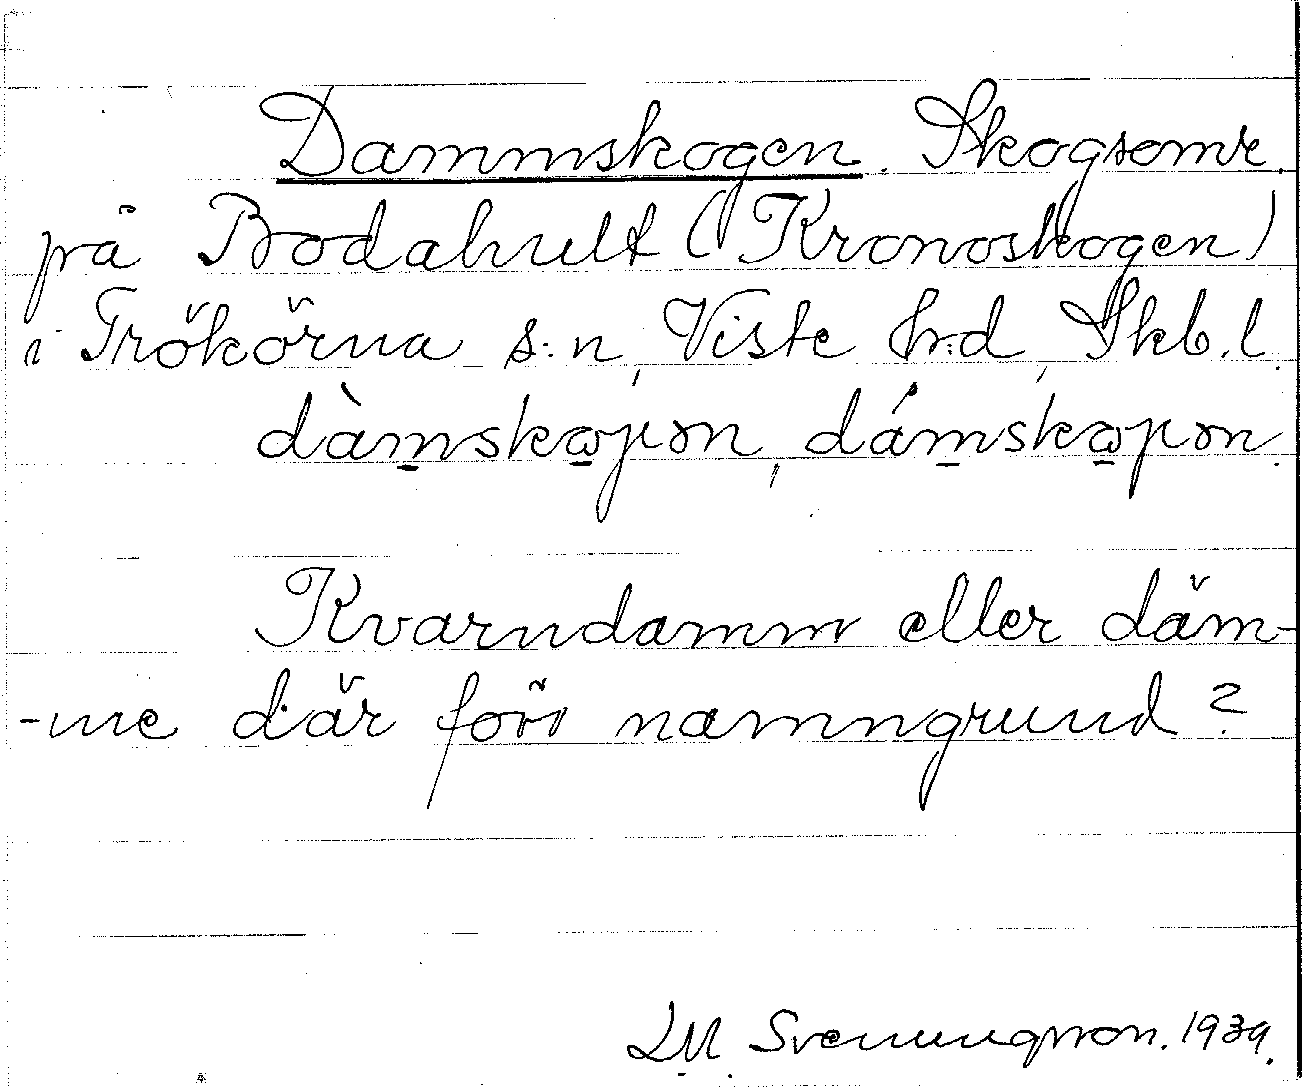 Dammskogen. Skogsomr.
på Bodahult (Kronoskogen)
i Trökörna s:n, Viste h:d, Skb.l.
dàmskoɡɔn, dámskoɡɔn.
Kvarndamm eller däm-
-me där förr namngrund?
LM Svenungsson. 1939.